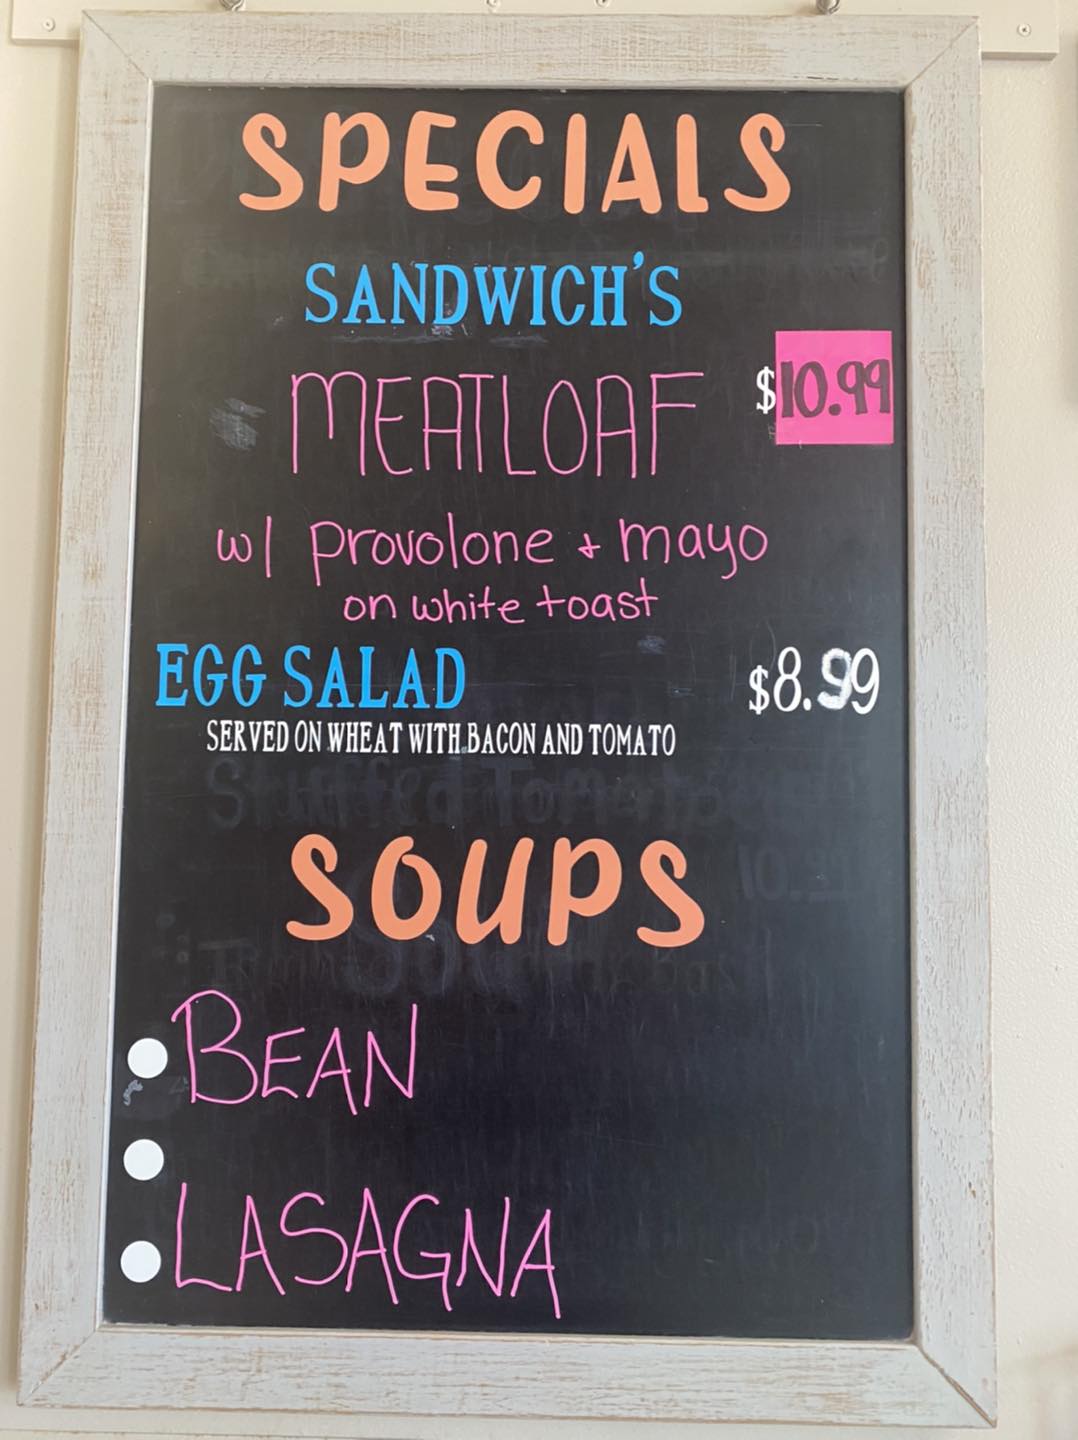 SPECIALS
SANDWICH'S
MEATLOAF $10.99
w/ provolone + mayo
on white toast
EGG SALAD $8.99
SERVED ON WHEAT WITH BACON AND TOMATO
Stuffed Tomato
SOUPS
BEAN
LASAGNA